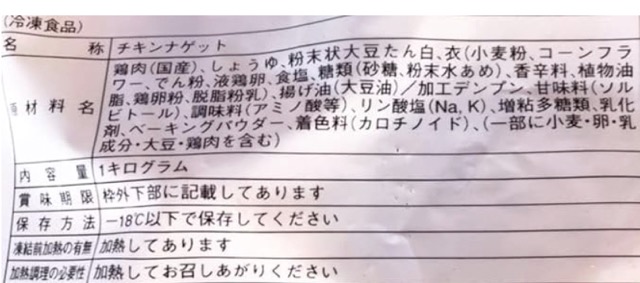 (冷凍食品)
名 称 チキンナゲット
原材料名 鶏肉(国産)、しょうゆ、粉末状大豆たん白、衣(小麦粉、コーンフラ
ワー、でん粉、液鶏卵、食塩、糖類(砂糖、粉末水あめ)、香辛料、植物油
脂、鶏卵粉、脱脂粉乳)、揚げ油(大豆油)/加工デンプン、甘味料(ソル
ビトール)、調味料(アミノ酸等)、リン酸塩(Na、K)、増粘多糖類、乳化
剤、ベーキングパウダー、着色料(カロチノイド)、(一部に小麦・卵・乳
成分・大豆・鶏肉を含む)
内 容 量 1キログラム
賞味期限 枠外下部に記載してあります
保存方法 −18℃以下で保存してください
凍結前加熱の有無 加熱してあります
加熱調理の必要性 加熱してお召しあがりください